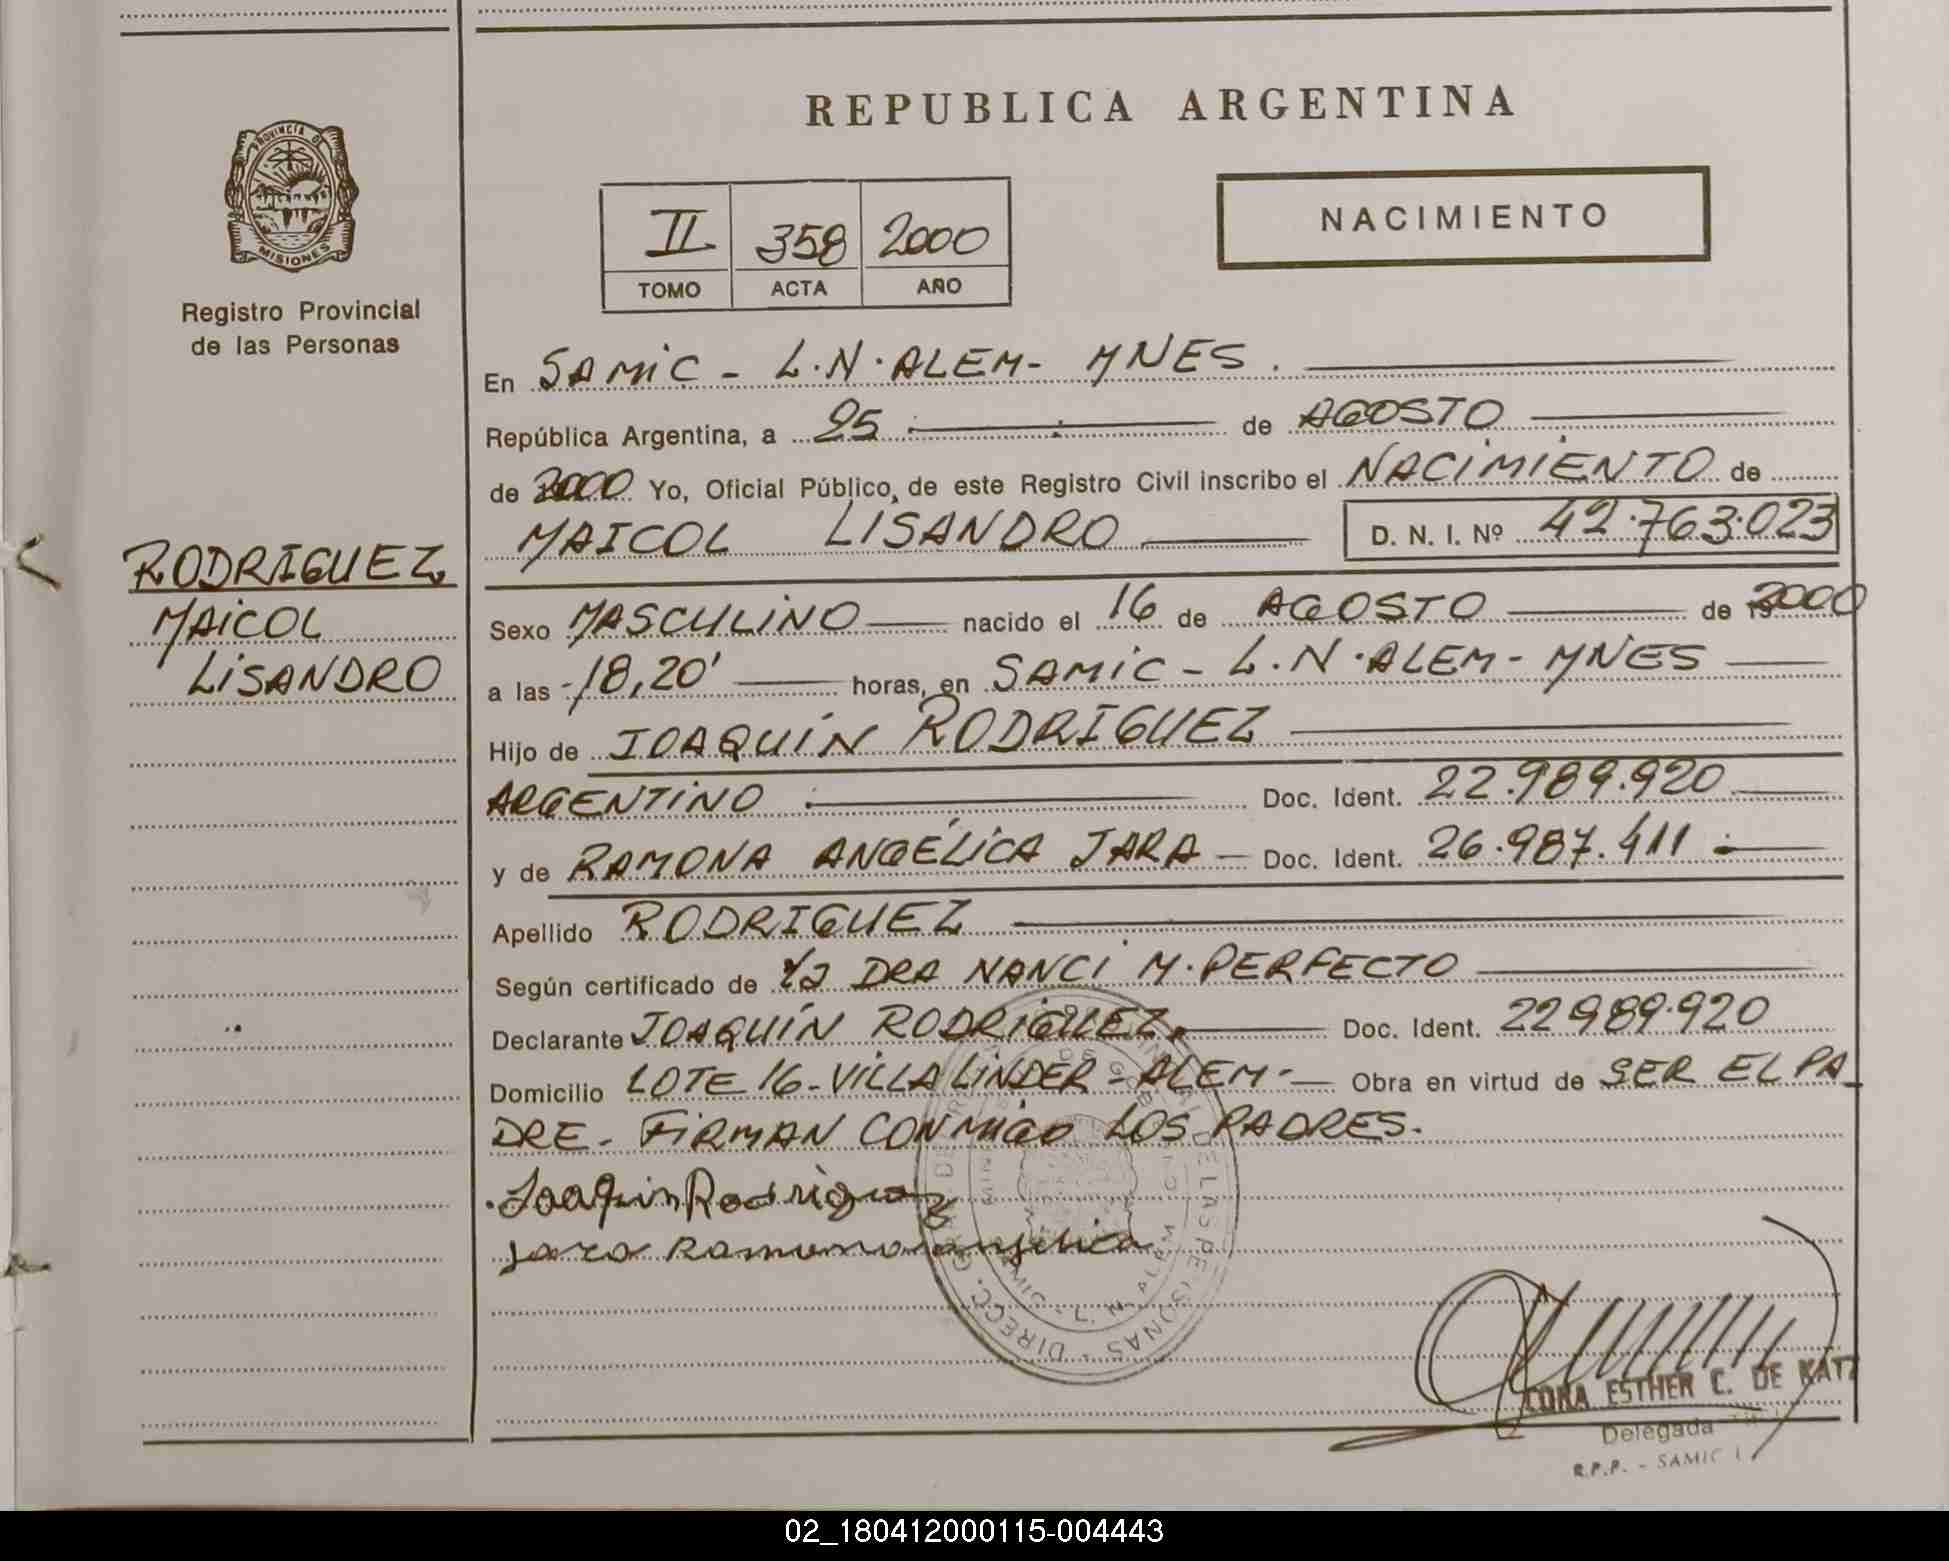 REPUBLICA ARGENTINA
PROVINCIA DE
MISIONES
Registro Provincial
de las Personas
II 358 2000
TOMO ACTA AÑO
NACIMIENTO
En SAMIC - L.N.ALEM - MNES.
República Argentina, a 25 de AGOSTO
de 2000 Yo, Oficial Público, de este Registro Civil inscribo el NACIMIENTO de
MAICOL LISANDRO D. N. I. Nº 42.763.023
RODRIGUEZ
MAICOL
LISANDRO
Sexo MASCULINO nacido el 16 de AGOSTO de 2000
a las 18,20' horas, en SAMIC - L.N.ALEM - MNES
Hijo de JOAQUÍN RODRIGUEZ
ARGENTINO Doc. Ident. 22.989.920
y de RAMONA ANGÉLICA JARA - Doc. Ident. 26.987.411
Apellido RODRIGUEZ
Según certificado de DRA NANCI M. PERFECTO
Declarante JOAQUÍN RODRIGUEZ Doc. Ident. 22989.920
Domicilio LOTE 16 - VILLA LINDER - ALEM - Obra en virtud de SER EL PA
DRE - FIRMAN CONMIGO LOS PADRES.
Joaquin Rodriguez
Jara Ramona angelica
DE LAS PERSONAS - DIRECC. GRAL. DE
SAMIC - L. N. ALEM
CORA ESTHER C. DE KATZ
Delegada
R.P.P. - SAMIC
02_180412000115-004443